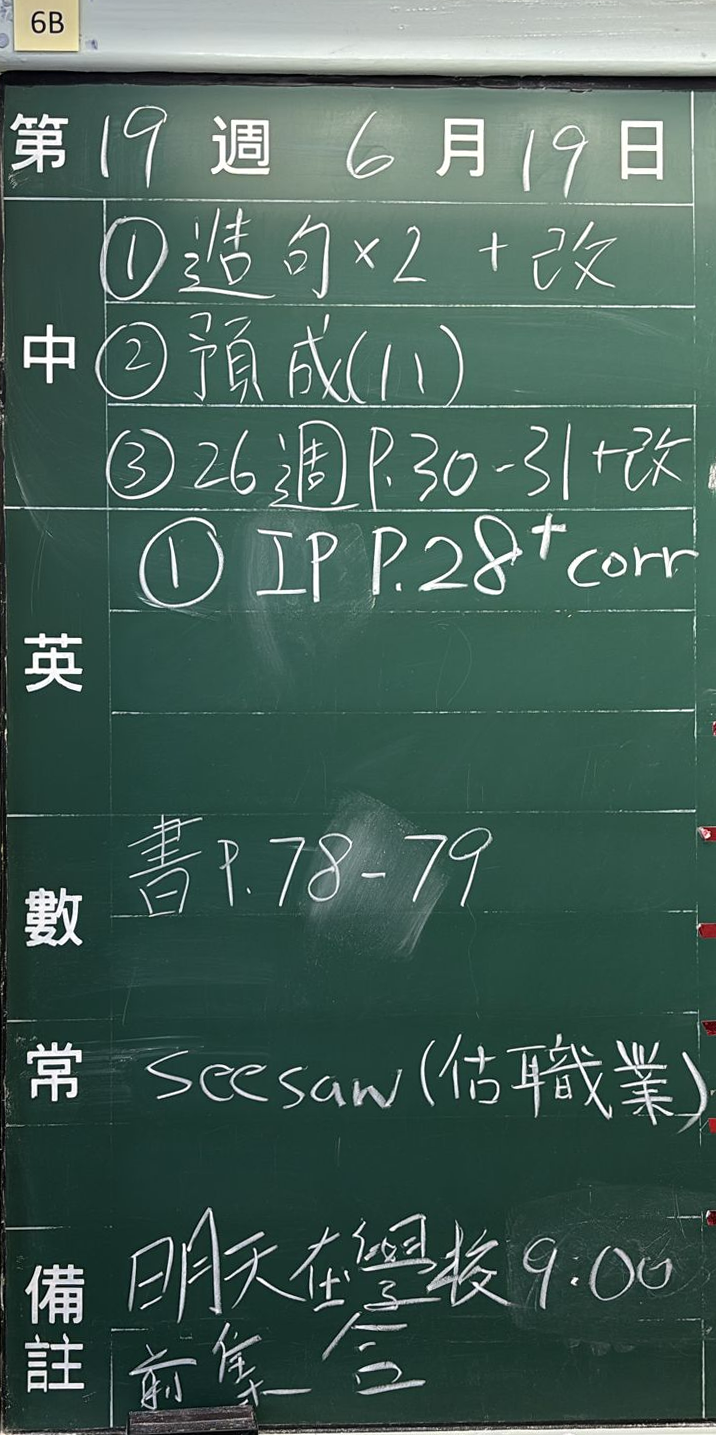 6B
第 19 週 6 月 19 日
中
①造句×2 + 改
②預成(11)
③26週P.30-31+改
英
① IP P.28+corr
數
書P.78-79
常
seesaw(估職業)
備註
明天在學校9:00
前集合